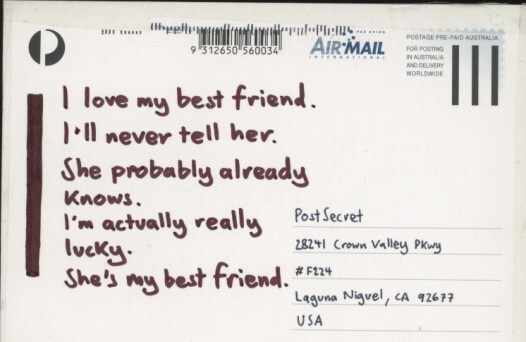 9 312650 560034
AIR MAIL
INTERNATIONAL
PAR AVION
POSTAGE PRE-PAID AUSTRALIA
FOR POSTING
IN AUSTRALIA
AND DELIVERY
WORLDWIDE
I love my best friend.
I'll never tell her.
She probably already
knows.
I'm actually really
lucky.
She's my best friend.
PostSecret
28241 Crown Valley Pkwy
# F224
Laguna Niguel, CA 92677
USA